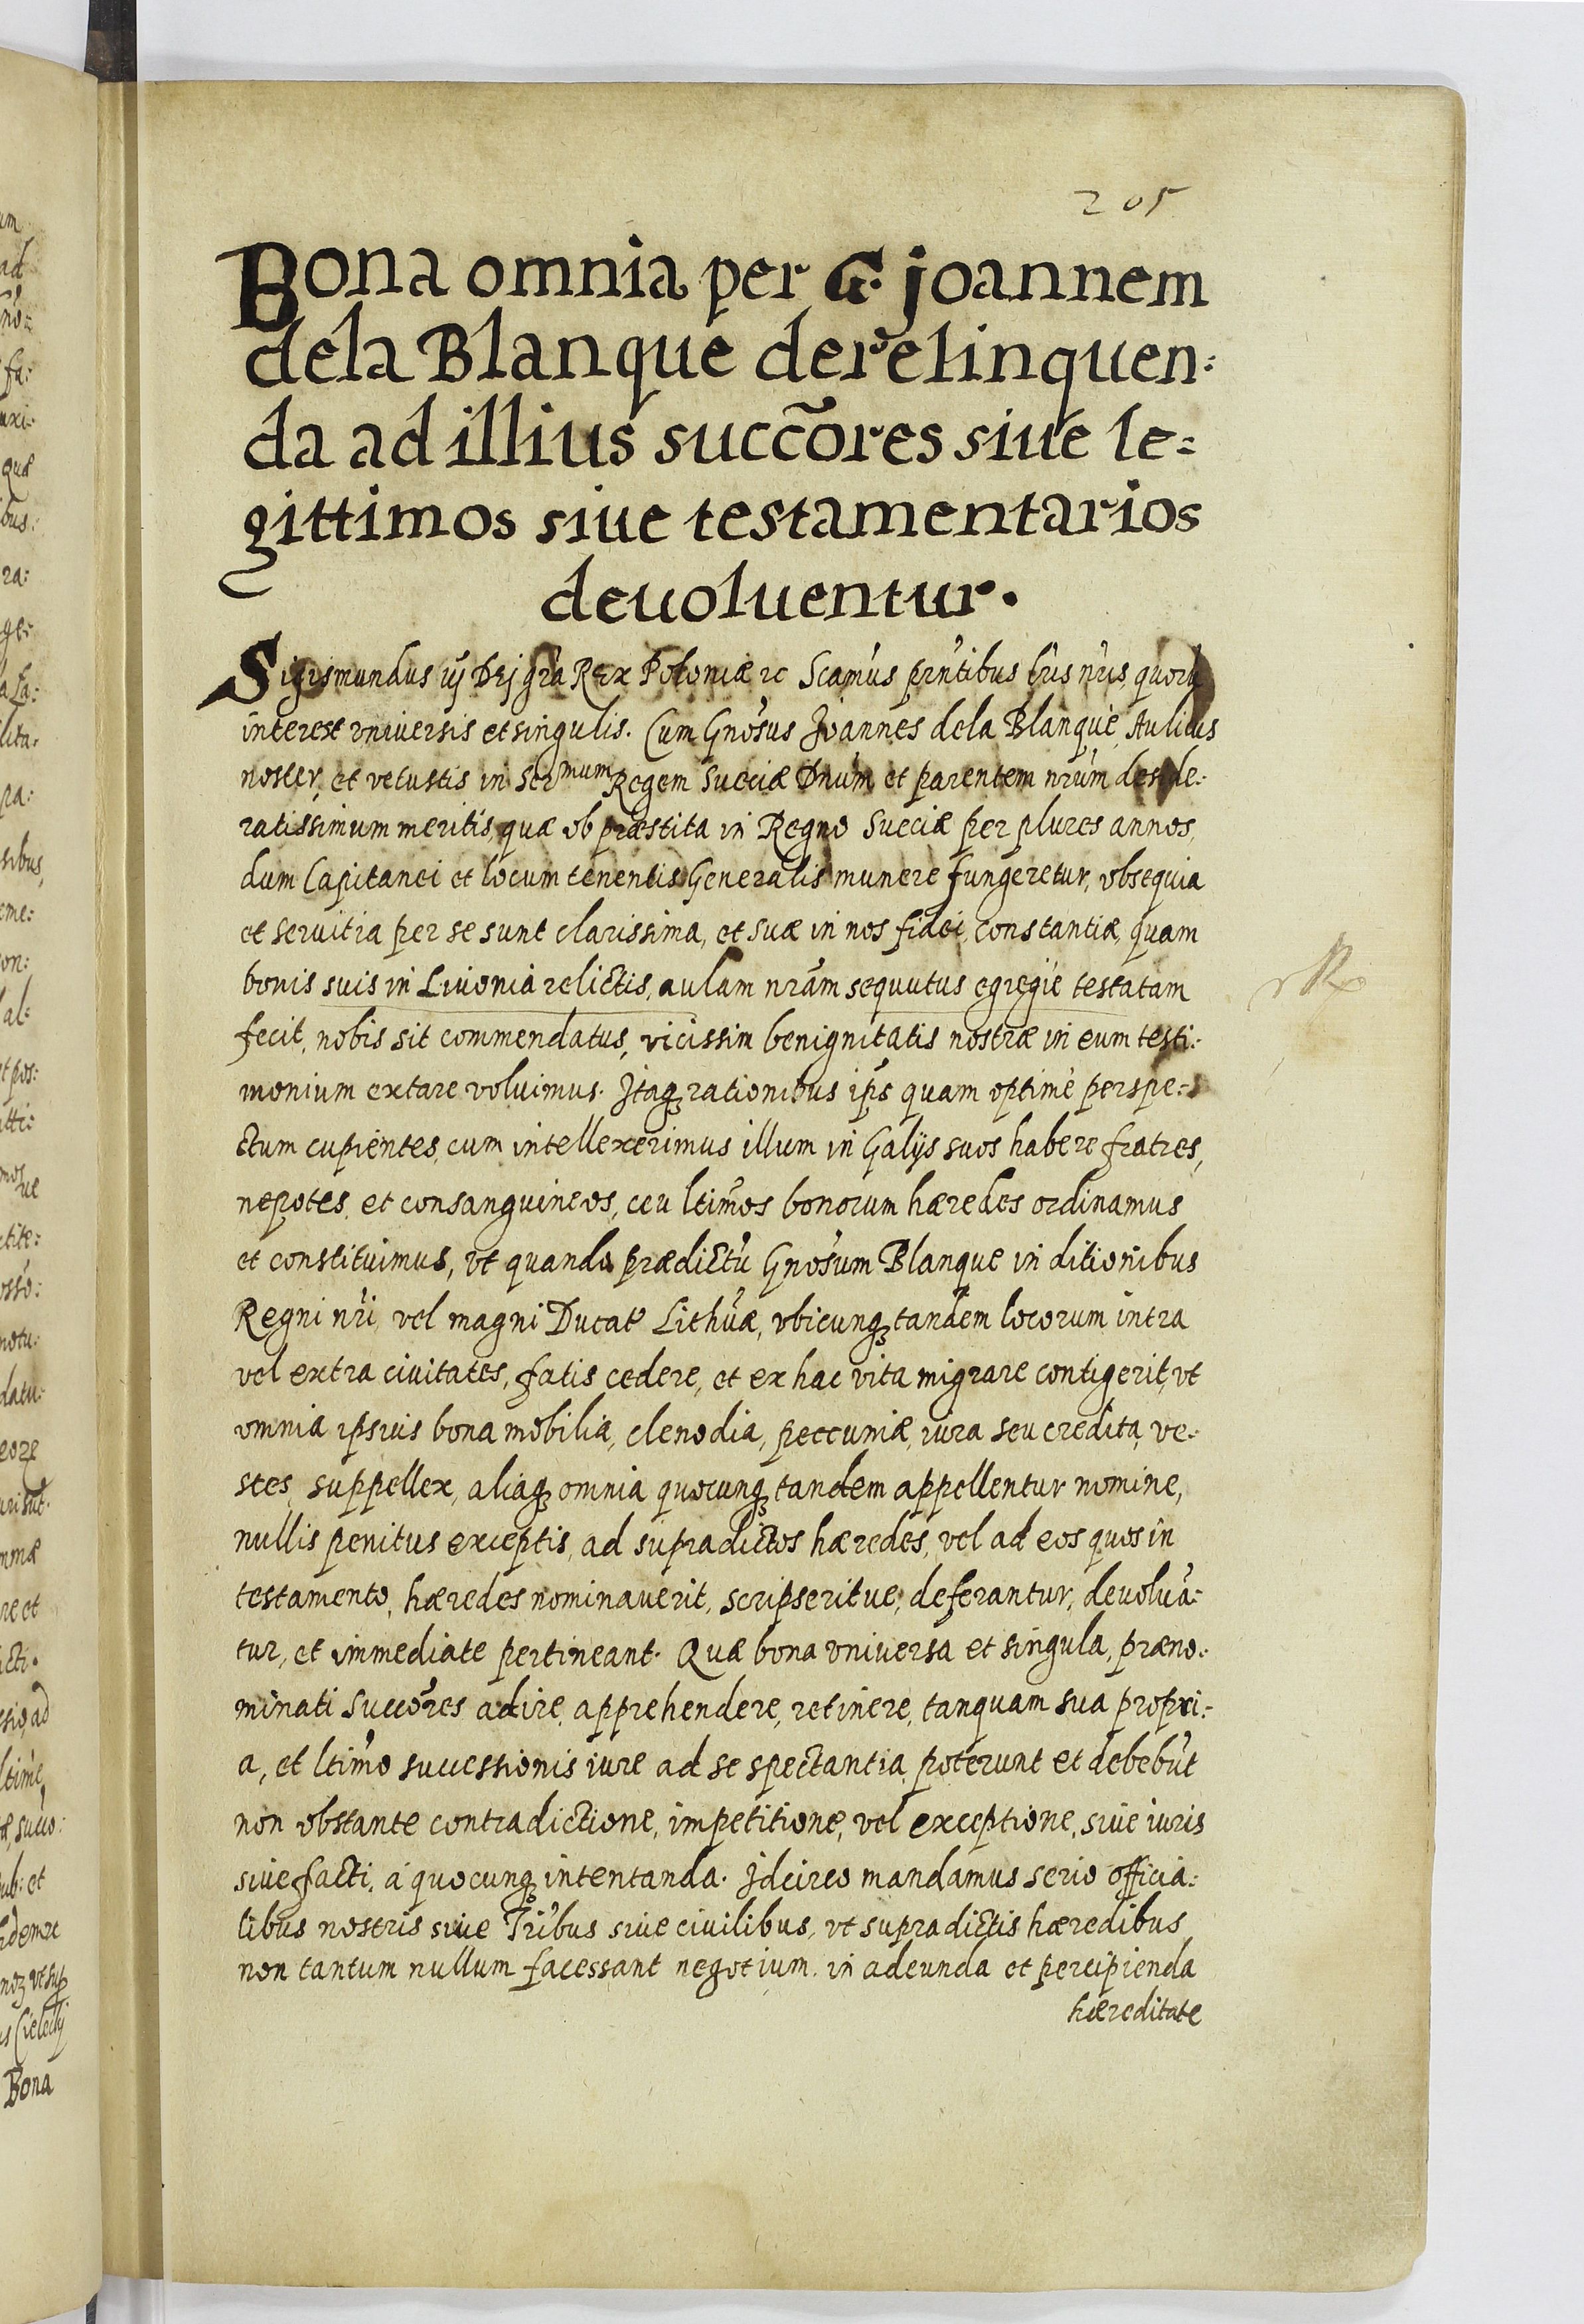 205
Bona omnia per G. Joannem
dela Blanque derelinquen:
da ad illius succõres siue le=
gittimos siue testamentarios
deuoluentur.
Sigismundus iij Dej gra̅ Rex Poloniæ ꝛc Scamus prn̅tibus lr̅is nr̅is, quorū
interest vniversis et singulis. Cum Gnōsus Joannes dela Blanque, Aulicus
noster, et vetustis in Sermum Regem Sueciæ Dnūm et parentem nrūm deside:
ratissimum meritis, quæ ob præstita in Regno Sueciæ per plures annos,
dum Capitanei et locum tenentis Generalis munere fungeretur, obsequia
et servitia per se sunt clarissima, et suæ in nos fidei, constantiæ, quam
bonis suis in Liuonia relictis, aulam nrām sequutus egregie testatam
fecit, nobis sit commendatus, vicissim benignitatis nostræ in eum testi:
monium extare voluimus. Itaqꝫ rationibus ips̄ quam optime perspe:
ctum cupientes, cum intellexerimus illum in Galijs suos habere fratres,
nepotes, et consanguineos, ceu ltim̄os bonorum hæredes ordinamus
et constituimus, vt quando prædictū Gnōsum Blanque in ditionibus
Regni nr̄i, vel magni Ducatꝰ Lithūæ, vbicunqꝫ tandem locorum intra
vel extra civitates, fatis cedere, et ex hac vita migrare contigerit, vt
omnia ipsius bona mobilia, clenodia, peccuniæ, iura seu credita, ve:
stes, suppellex, aliaqꝫ omnia quocunqꝫ tandem appellentur nomine,
nullis penitus exceptis, ad supradictos hæredes, vel ad eos quos in
testamento, hæredes nominauerit, scripseritue, deferantur, deuoluā:
tur, et immediate pertineant. Quæ bona vniuersa et singula, præno:
minati Succōres adire, apprehendere, retinere, tanquam sua propri:
a, et ltim̄o successionis iure ad se spectantia, poterunt et debebūt
non obstante contradictione, impetitione, vel exceptione, siue iuris
siue facti, a quocunqꝫ intentanda. Idcirco mandamus serio officia:
libus nostris siue Trībus siue civilibus, vt supradictis hæredibus
non tantum nullum facessant negotium. in adeunda et percipienda
hæreditate